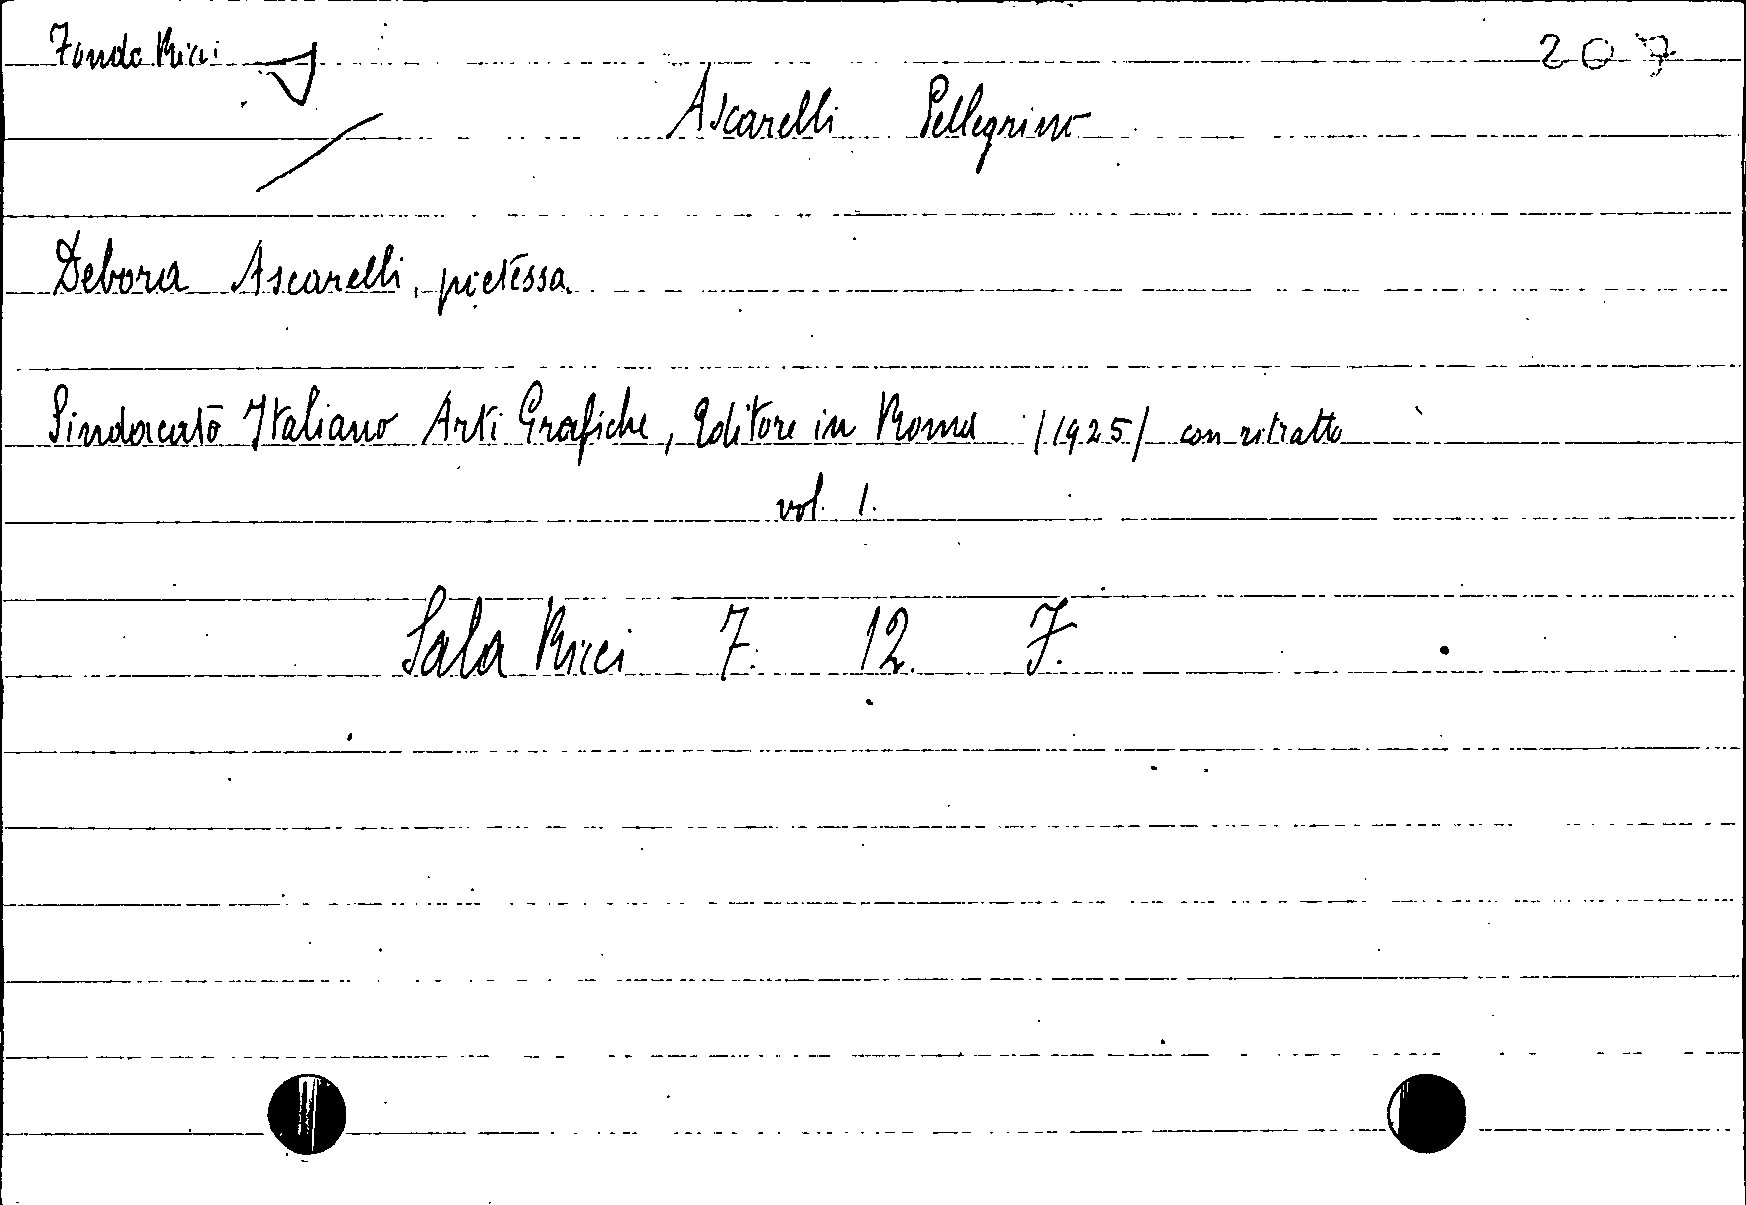 Fondo Ricci
207
Ascarelli Pellegrino
Debora Ascarelli, poetessa.
Sindacato Italiano Arti Grafiche, Editore in Roma /1925/ con ritratto
vol. 1.
Sala Ricci 7. 12. 7.